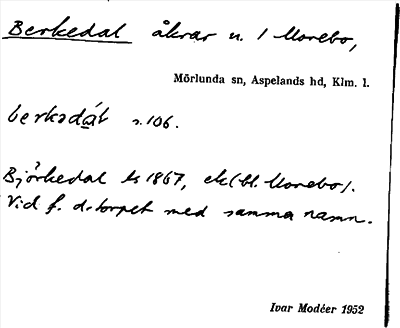 Berkedal åkrar u. 1 Morebo,
Mörlunda sn, Aspelands hd, Klm. l.
berkədát s.106.
Björkedal ls 1867, ek(bl. Morebo).
Vid f. d. torpet med samma namn.
Ivar Modéer 1952